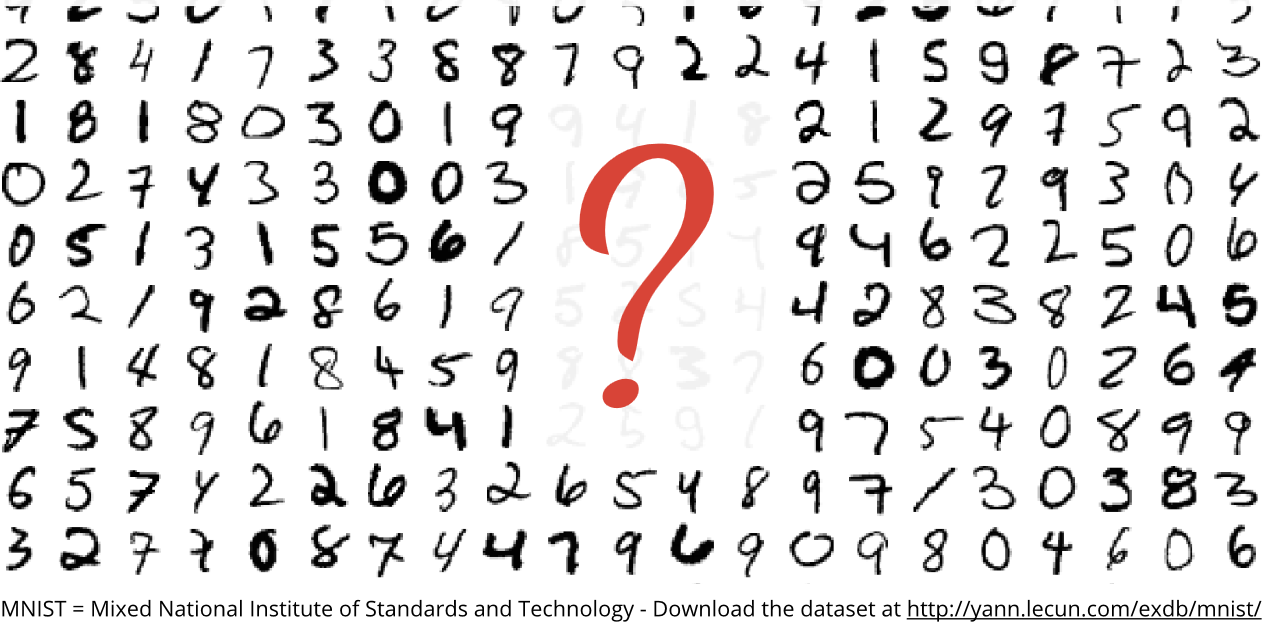 2 8 4 1 7 3 3 8 8 7 9 2 2 4 1 5 9 8 7 2 3
1 8 1 8 0 3 0 1 9 9 4 1 8 2 1 2 9 7 5 9 2
0 2 7 4 3 3 0 0 3 1 5 2 5 9 2 9 3 0 4
0 5 1 3 1 5 5 6 1 8 5 9 4 6 2 2 5 0 6
?
6 2 1 9 2 8 6 1 9 5 5 4 4 2 8 3 8 2 4 5
9 1 4 8 1 8 4 5 9 8 3 7 6 0 0 3 0 2 6 4
7 5 8 9 6 1 8 4 1 2 5 9 1 9 7 5 4 0 8 9 9
6 5 7 4 2 2 6 3 2 6 5 4 8 9 7 1 3 0 3 8 3
3 2 7 7 0 8 7 4 4 7 9 6 9 0 9 8 0 4 6 0 6
MNIST = Mixed National Institute of Standards and Technology - Download the dataset at http://yann.lecun.com/exdb/mnist/